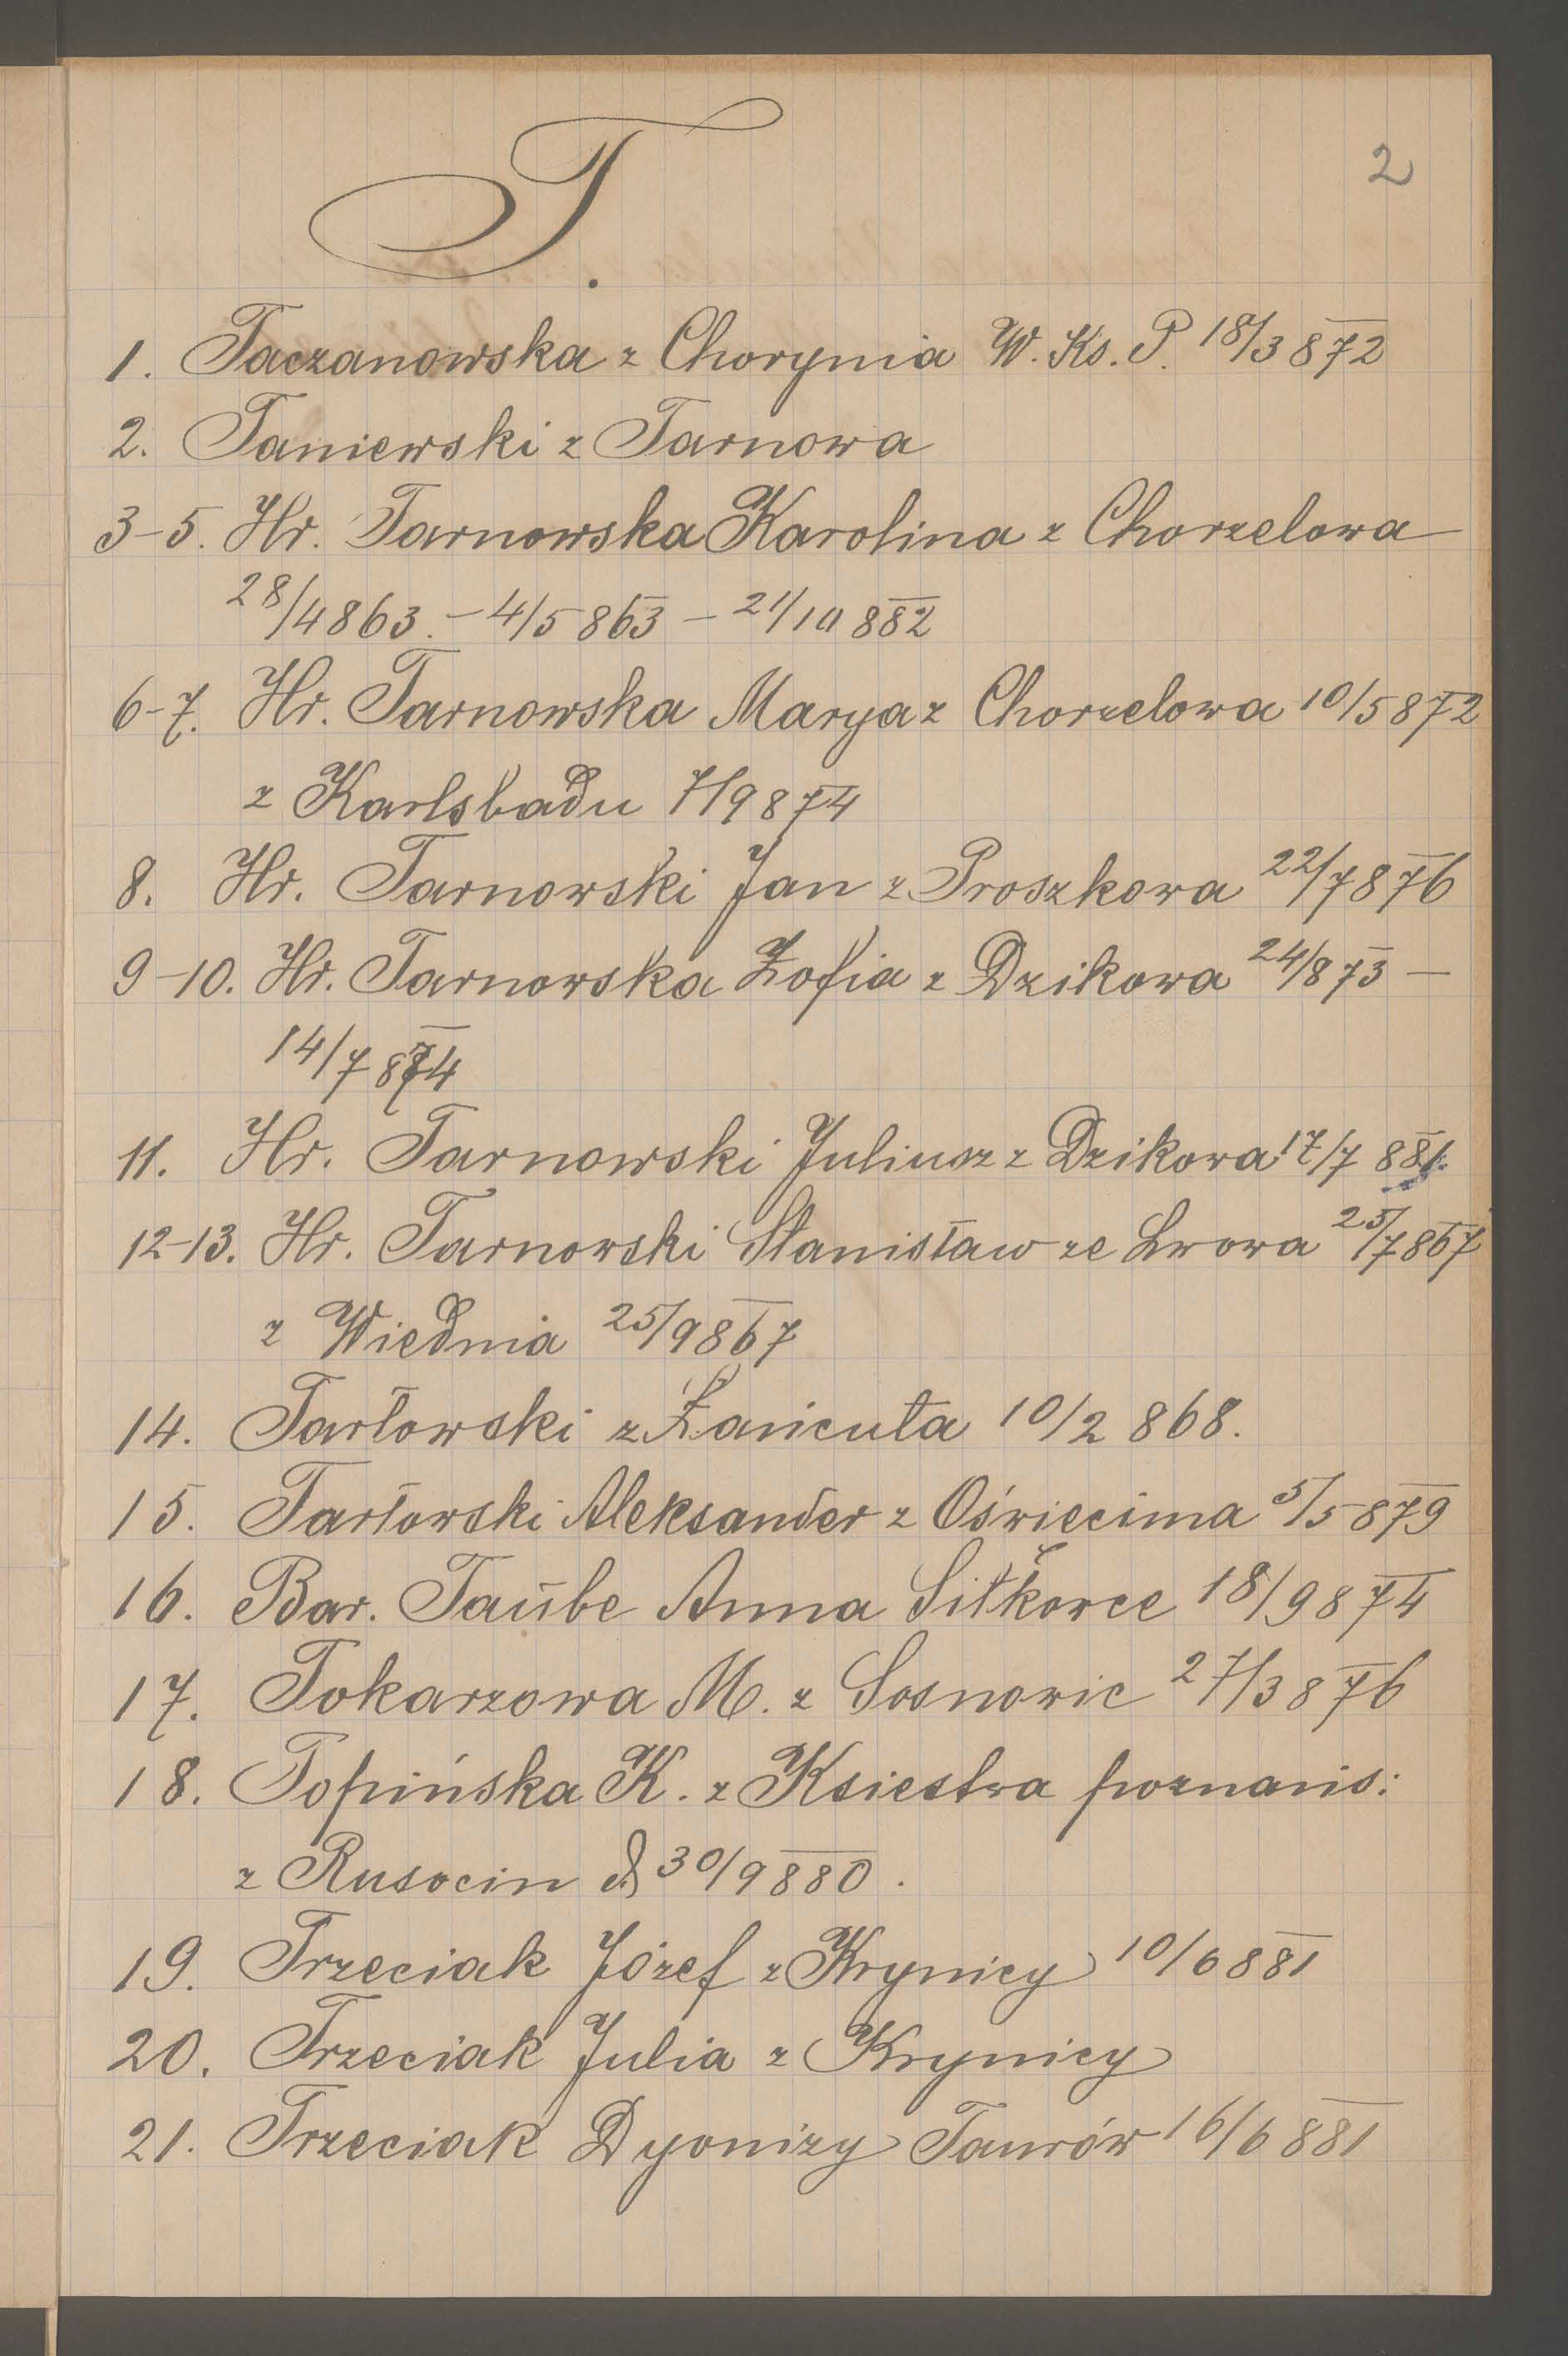 2
T.
1. Taczanowska z Chorynia W. Ks. P. 18/3 872
2. Taniewski z Tarnowa
3-5. Hr. Tarnowska Karolina z Chorzelowa
28/4 863. - 4/5 863 - 21/10 882
6-7. Hr. Tarnowska Marya z Chorzelowa 10/5 872
z Karlsbadu 7/9 874
8. Hr. Tarnowski Jan z Proszkowa 22/7 876
9-10. Hr. Tarnowska Zofia z Dzikowa 24/873 -
14/7 874
11. Hr. Tarnowski Juliusz z Dzikowa 17/7 881.
12-13. Hr. Tarnowski Stanisław ze Lwowa 25/7 867
z Wiednia 25/9 867
14. Tarłowski z Łańcuta 10/2 868.
15. Tarłowski Aleksander z Oświecima 5/5 879
16. Bar. Taube Anna Sitkowce 18/9 874
17. Tokarzowa M. z Sosnowic 27/3 876
18. Topińska K. z Ksiestwa poznańs:
z Rusocin d. 30/9 880.
19. Trzeciak Józef z Krynicy 10/6 881
20. Trzeciak Julia z Krynicy
21. Trzeciak Dyonizy Taurów 16/6 881